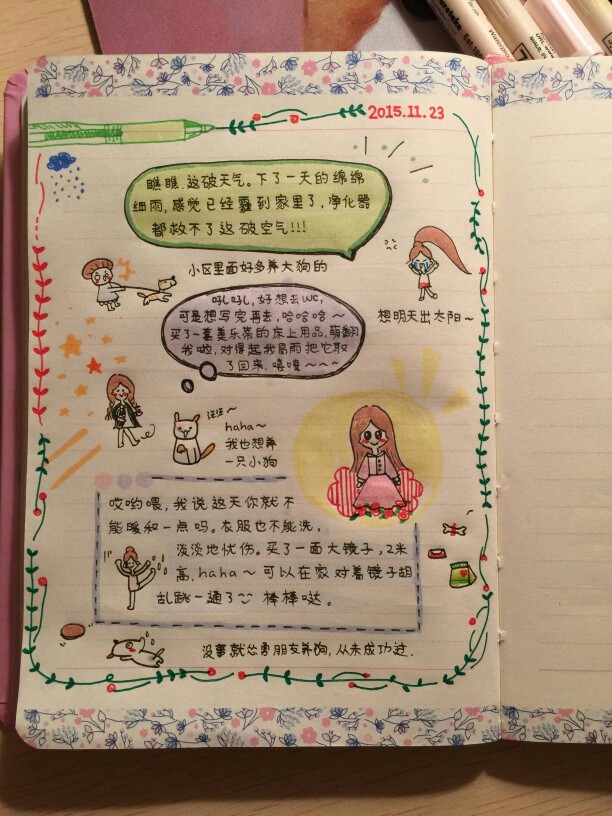 2015.11.23
瞧瞧.这破天气。下了一天的绵绵
细雨,感觉已经霾到家里了,净化器
都救不了这破空气!!!
小区里面好多养大狗的
想明天出太阳~
吼吼,好想去WC,
可是想写完再去,哈哈哈~
买了一套美乐蒂的床上用品,萌翻
我啦,对得起我冒雨把它取
了回来,嘻嘻~~~
汪汪~
haha~
我也想养
一只小狗
哎哟喂,我说这天你就不
能暖和一点吗。衣服也不能洗,
淡淡地忧伤。买了一面大镜子,2米
高,haha~可以在家对着镜子胡
乱跳一通了 棒棒哒。
没事就怂恿朋友养狗,从未成功过.